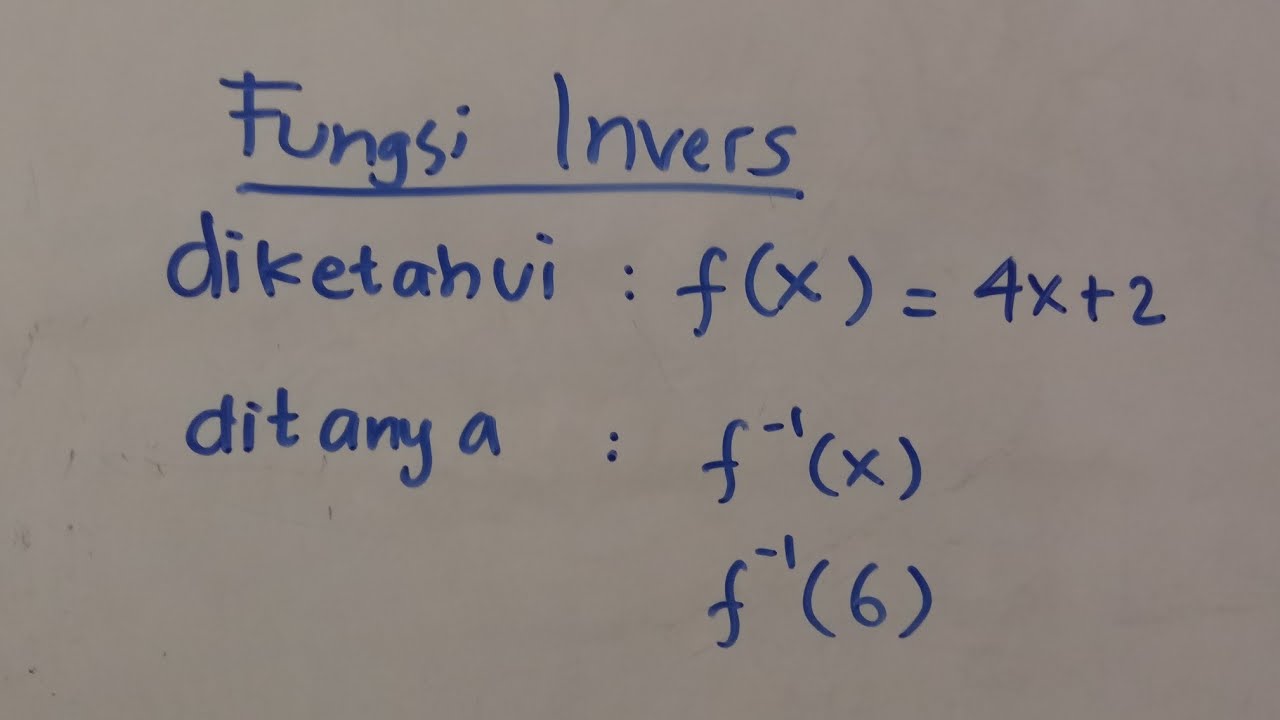 Fungsi Invers
diketahui : f(x) = 4x+2
ditanya : f⁻¹(x)
f⁻¹(6)